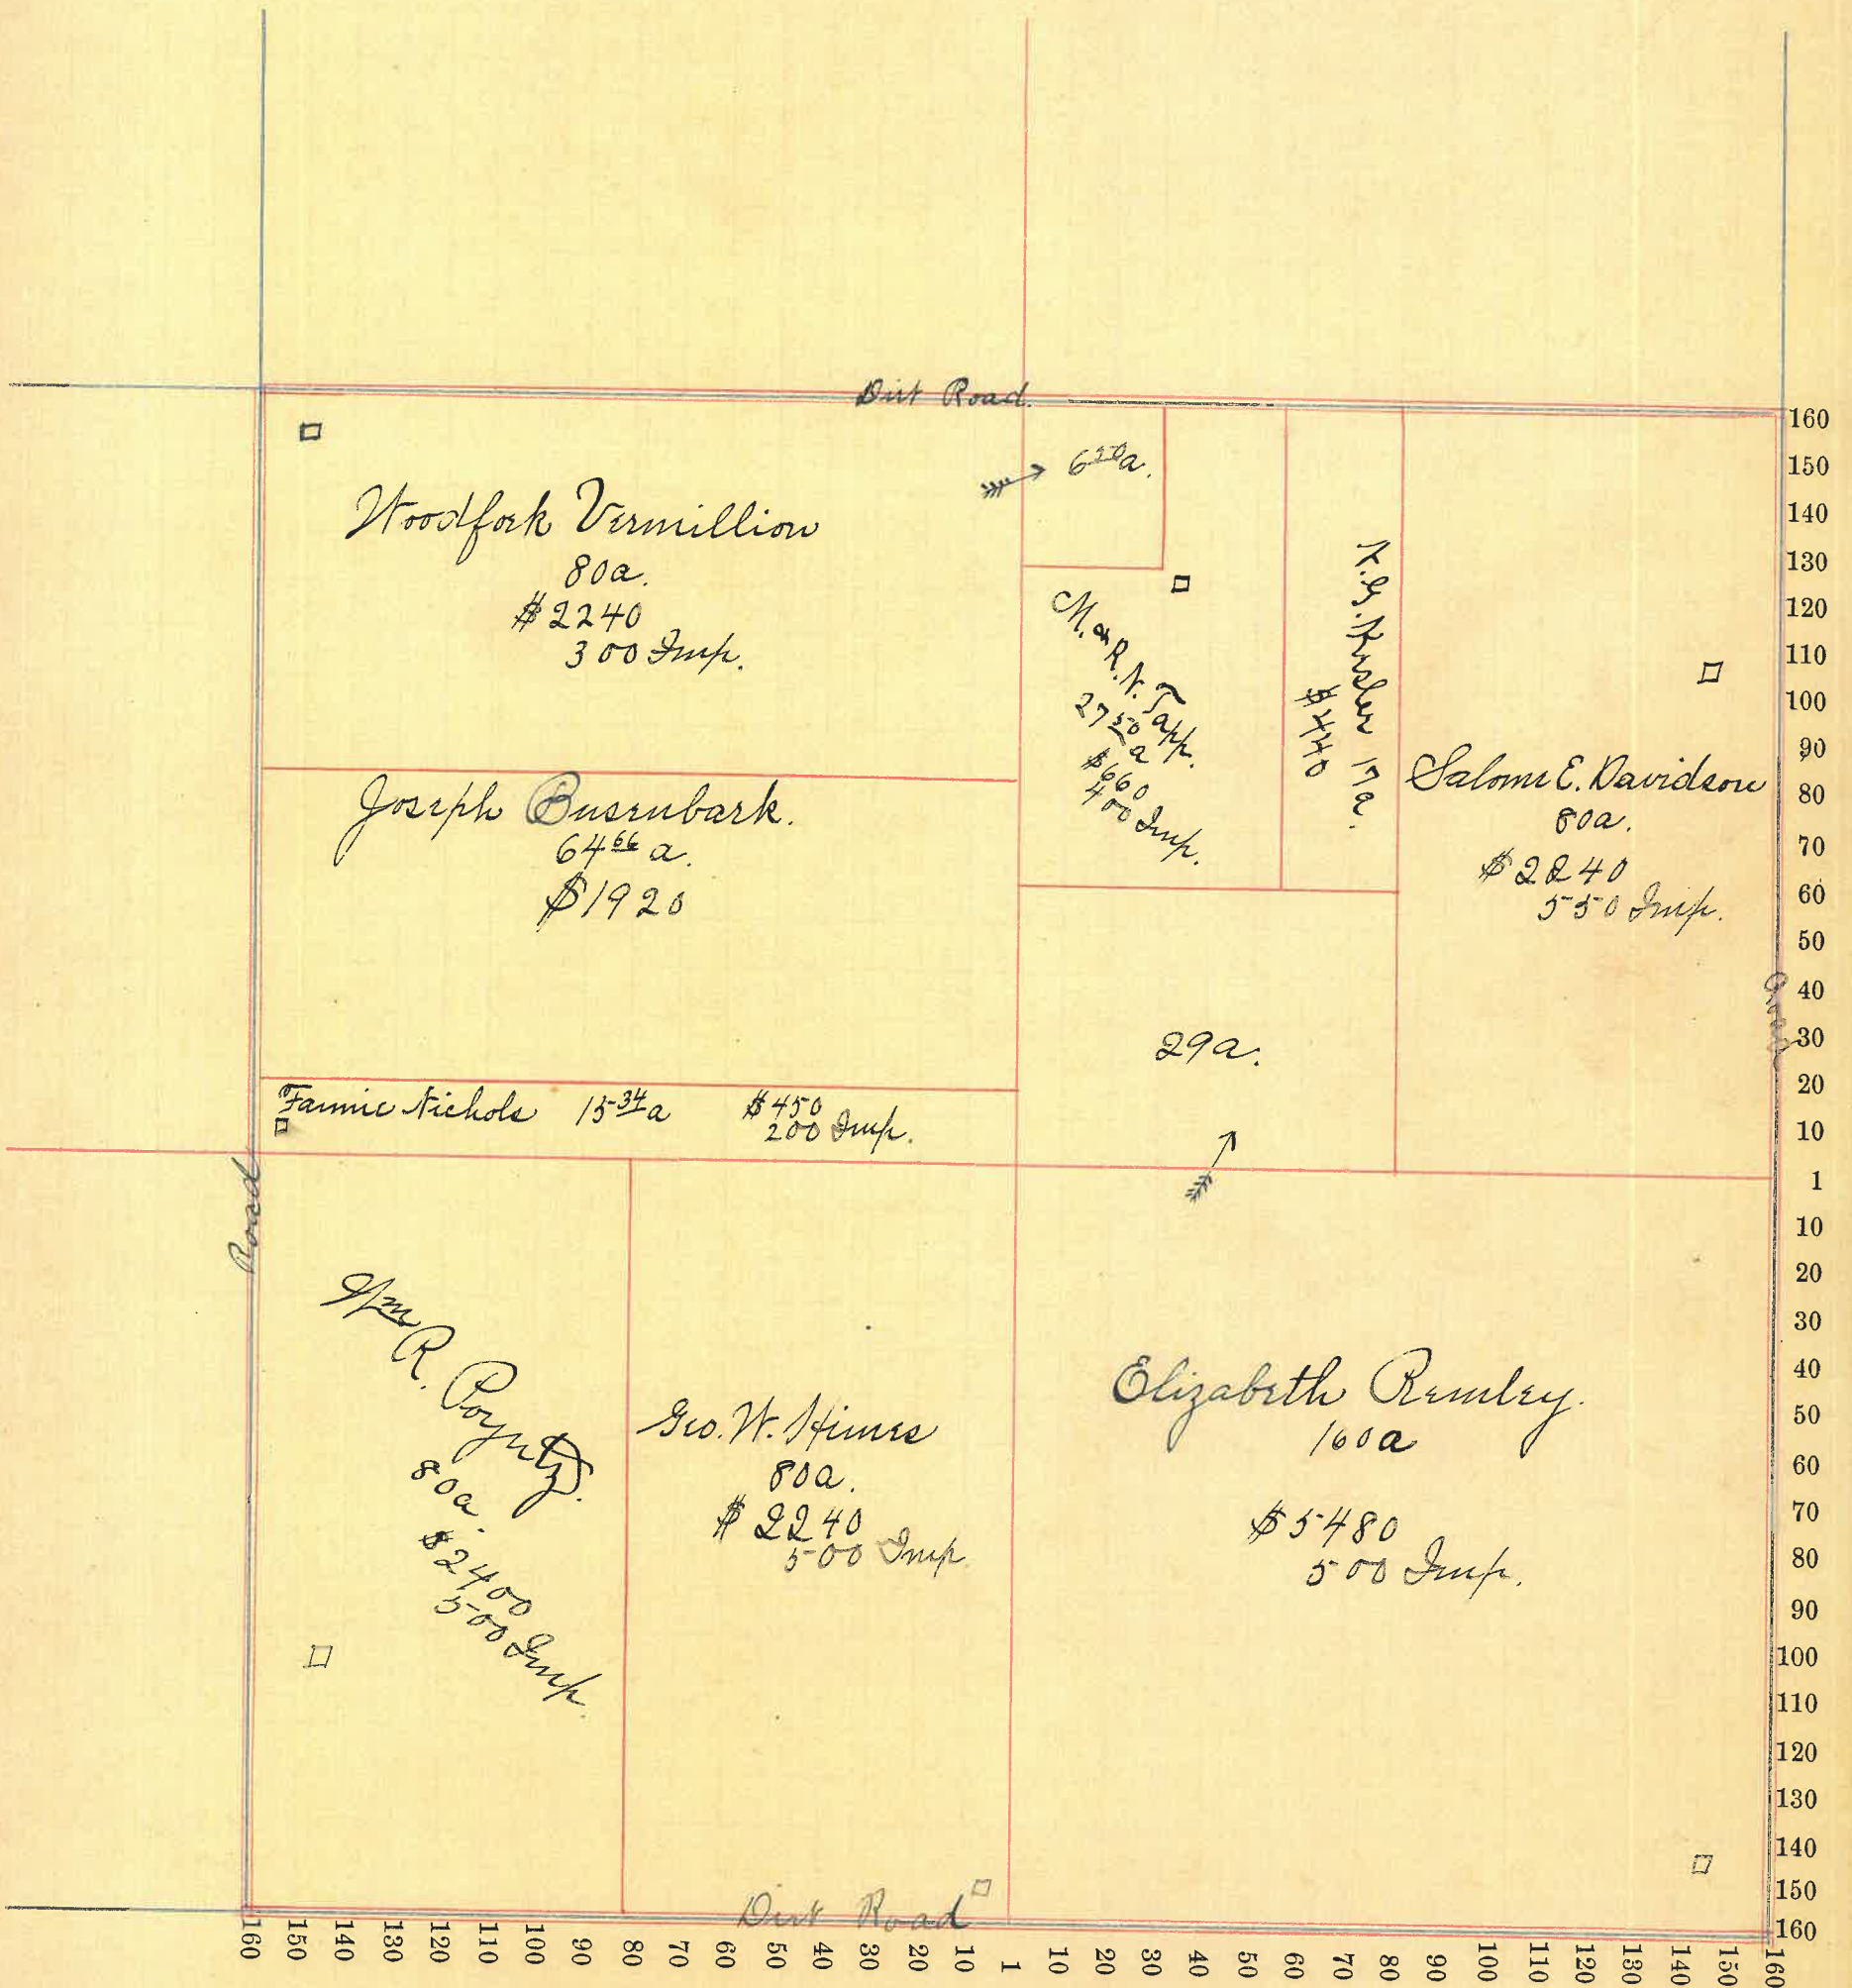 Dirt Road.
Woodfork Vermillion
80a.
$2240
300 Imp.
6 50 a.
M. & R. N. Tapp.
27 50 a
$660
400 Imp.
17a.
$440
Salome E. Davidson
80a.
$2240
550 Imp.
Joseph Busenbark.
64 66 a.
$1920
29a.
Fannie Nichols 15 34 a $450
200 Imp.
Road
Wm R. Poyntz.
80a.
$2400
500 Imp.
Geo. W. Himes
80a.
$2240
500 Imp.
Elizabeth Remley.
160a
$5480
500 Imp.
Dirt Road
160
150
140
130
120
110
100
90
80
70
60
50
40
30
20
10
1
10
20
30
40
50
60
70
80
90
100
110
120
130
140
150
160
160 150 140 130 120 110 100 90 80 70 60 50 40 30 20 10 1 10 20 30 40 50 60 70 80 90 100 110 120 130 140 150 160